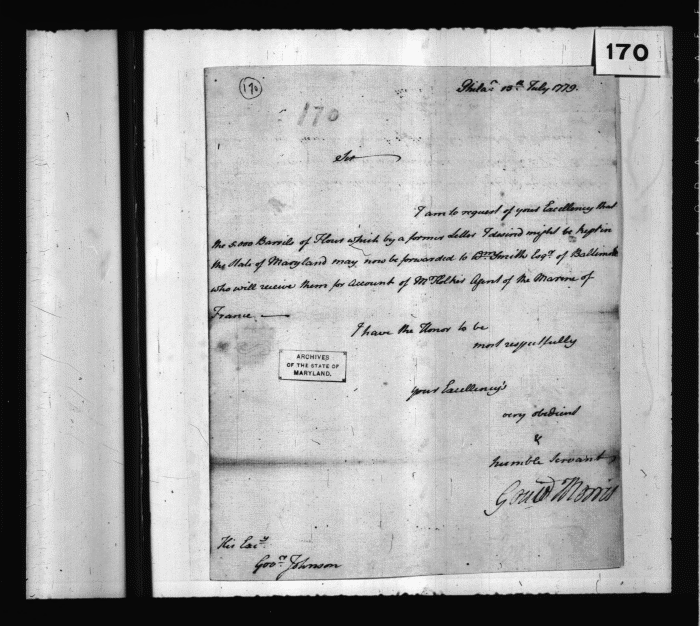 170
170
Philaª 13th July 1779.
170
Sir
I am to request of your Excellency that
the 5.000 Barrels of Flour which by a former Letter I desired might be kept in
the State of Maryland may now be forwarded to Wm Smith Esqr. of Baltimore
who will receive them for Account of Mr Holker Agent of the Marine of
France.
I have the Honor to be
most respectfully
ARCHIVES
OF THE STATE OF
MARYLAND.
your Excellency's
very obedient
&
humble Servant
Gouvr Morris
His Excy.
Govr. Johnson